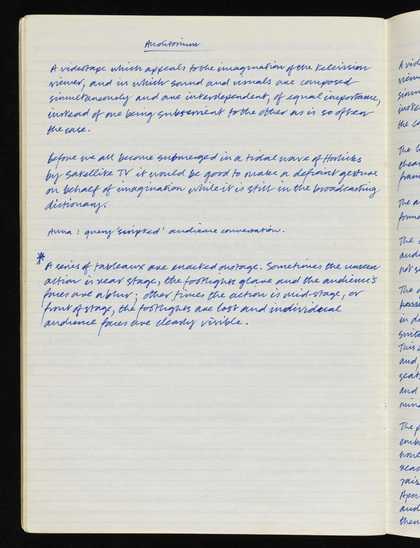 Auditorium
A videotape which appeals to the imagination of the television
viewer, and in which sound and visuals are composed
simultaneously and are interdependent, of equal importance,
instead of one being subservient to the other as is so often
the case.
before we all become submerged in a tidal wave of
by satellite TV it would be good to make a defiant gesture
on behalf of imagination while it is still in the broadcasting
dictionary.
Anna: query 'scripted' audience conversation.
* A series of tableaux are enacted onstage. Sometimes the unseen
action is rear stage, the footlights glare and the audience's
faces are a blur; other times the action is mid-stage, or
front of stage, the footlights are lost and individual
audience faces are clearly visible.